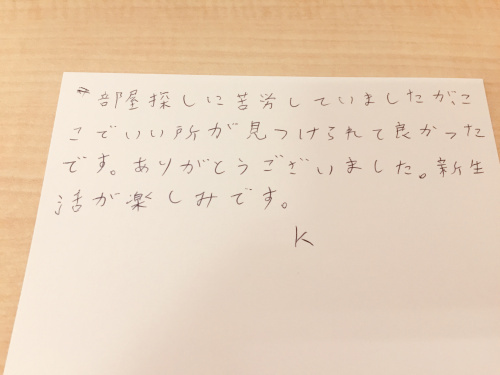 部屋探しに苦労していましたが、こ
こでいい所が見つけられて良かった
です。ありがとうございました。新生
活が楽しみです。
K